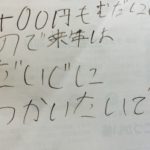 +00円もむだに
ので来年は
だいじに
つかいたいで